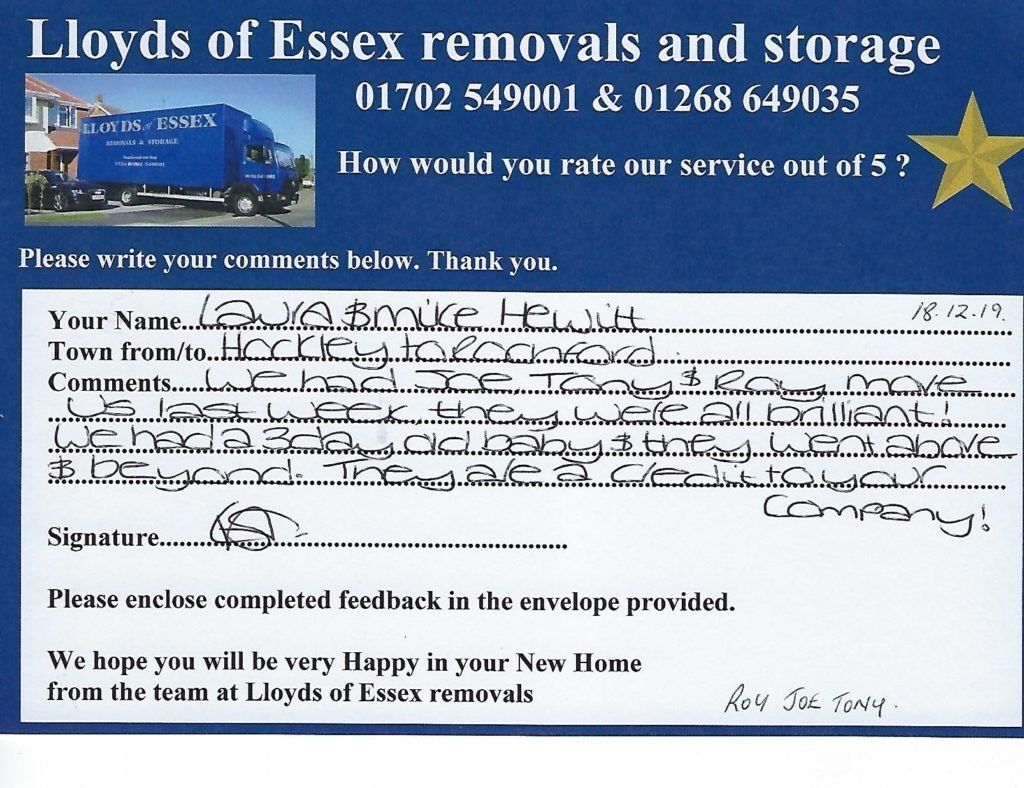 Lloyds of Essex removals and storage
01702 549001 & 01268 649035
LLOYDS of ESSEX
REMOVALS & STORAGE
How would you rate our service out of 5 ?
Please write your comments below. Thank you.
18.12.19.
Your Name...Laura & Mike Hewitt
Town from/to...Hockley to Rochford
Comments....We had Joe, Tony & Roy move
us last week, they were all brilliant!
We had a 3 day old baby & they went above
& beyond. They are a credit to your
Company!
Signature
Please enclose completed feedback in the envelope provided.
We hope you will be very Happy in your New Home
from the team at Lloyds of Essex removals
ROY JOE TONY.